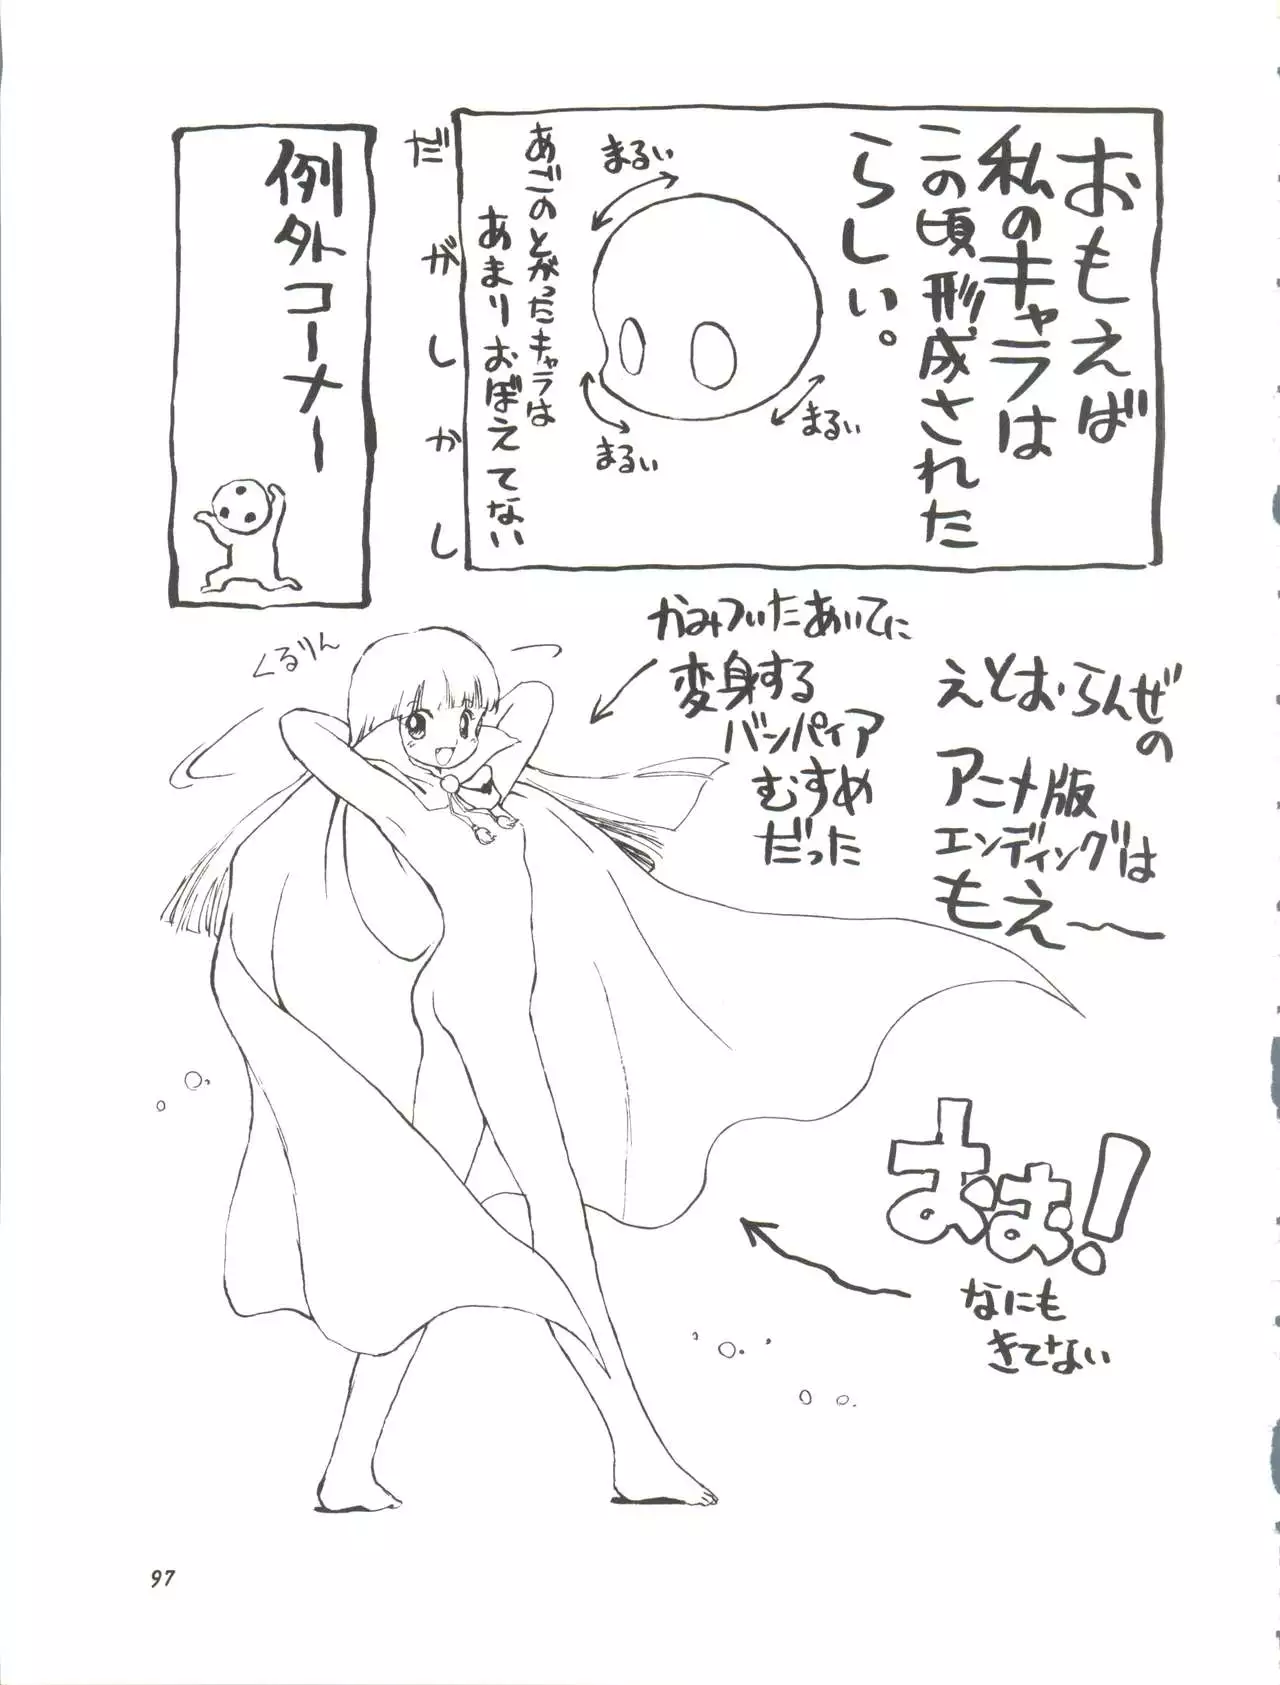 おもえば
私のキャラは
この頃形成された
らしい。
まるい
まるい
まるい
あごのとがったキャラは
あまりおぼえてない
だがしかし
例外コーナー
えとおらんぜの
アニメ版
エンディングは
もえ〜
かみついたあいてに
変身する
バンパイア
むすめ
だった
くるりん
おお!
なにも
きてない
97